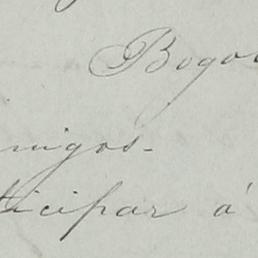 Bogo
migos.
ticipar á